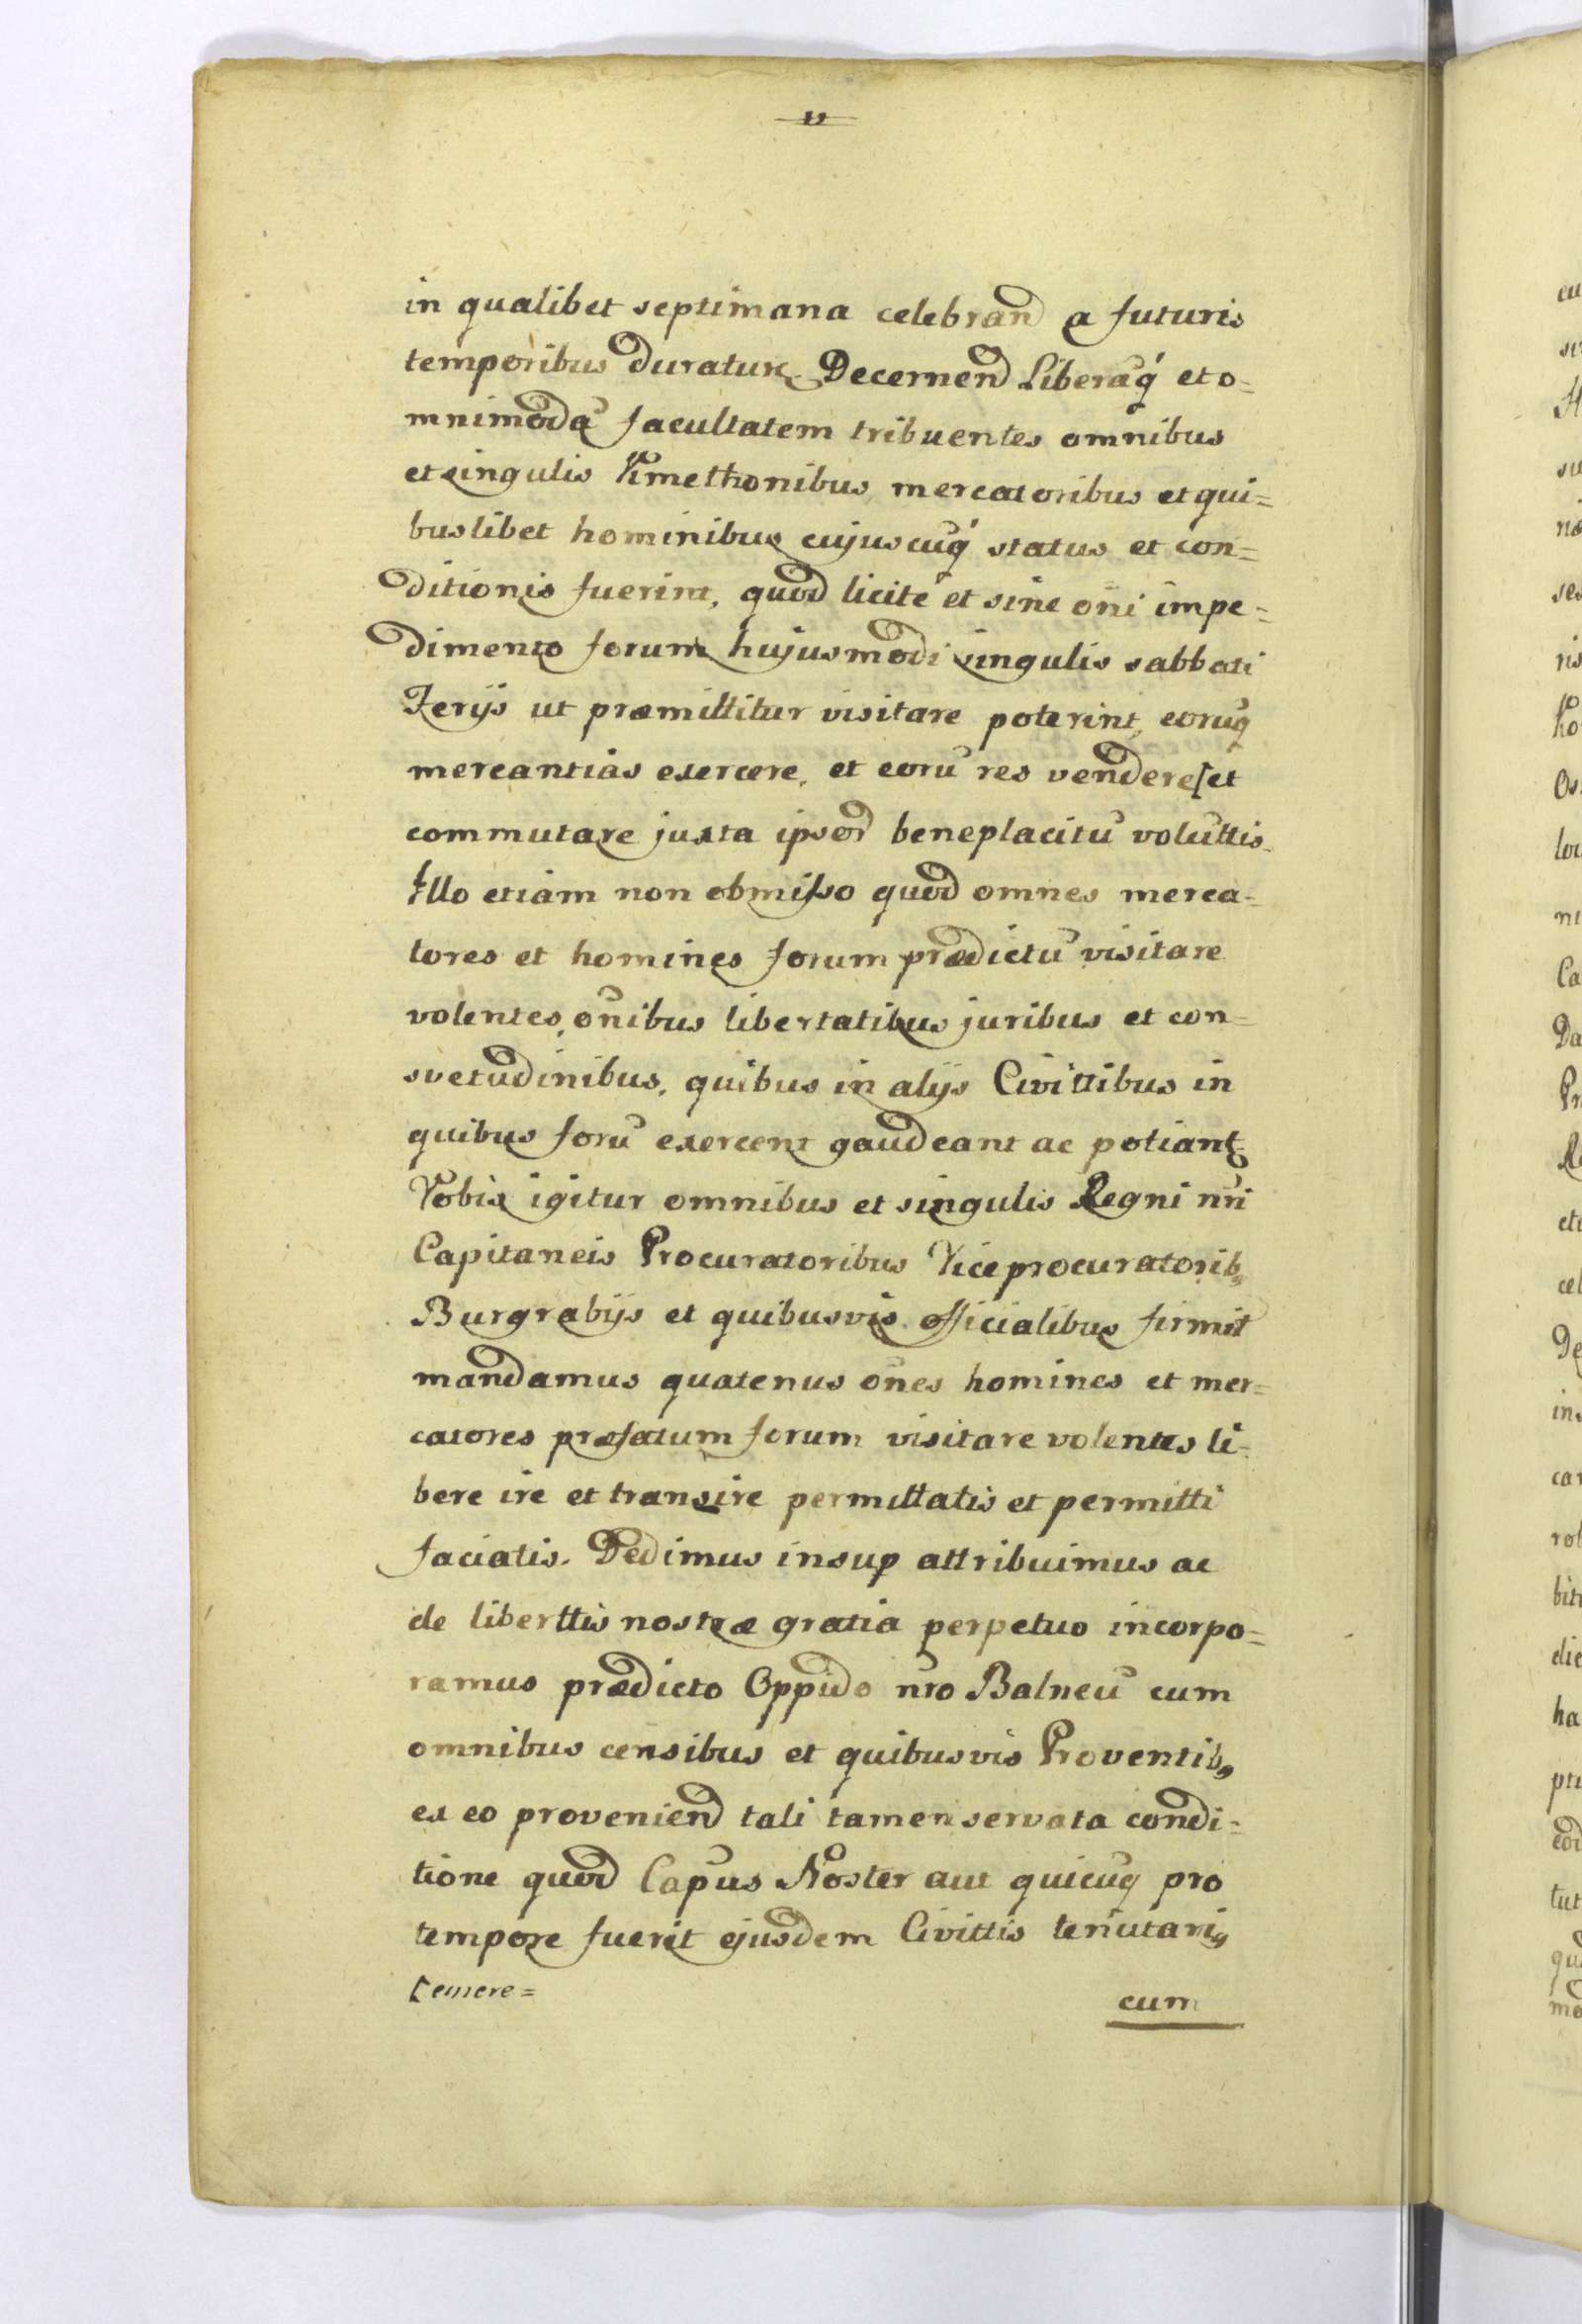 in qualibet septimana celebrand a futuris
temporibus duratur. Decernend Liberaq́ et o=
mnimodā facultatem tribuentes omnibus
et singulis Kmethonibus mercatoribus et qui=
buslibet hominibus cujuscuq́ status et con=
ditionis fuerint, quod licitè et sine oñi impe=
dimento forum hujusmodi singulis sabbati
Ferijs ut præmittitur visitare poterint, eoruq
mercantias exercere, et eorū res vendere [et
commutare juxta ipsor beneplacitū voluttis.
Illo etiam non obmisso quod omnes merca=
tores et homines forum prædictū visitare
volentes, oñibus libertatibus juribus et con=
svetudinibus, quibus in alijs Civittibus in
quibus forū exercent gaudeant ac potiant
Vobis igitur omnibus et singulis Regni nr̃i
Capitaneis Procuratoribus Viceprocuratorib,
Burgrabijs et quibusvis officialibus firmit
mandamus quatenus oñes homines et mer=
catores præfatum forum visitare volentes li=
bere ire et transire permittatis et permitti
faciatis. Dedimus insup attribuimus ac
de liberttis nostræ gratia perpetuo incorpo=
ramus prædicto Oppido nr̃o Balneū cum
omnibus censibus et quibusvis Proventib,
ex eo proveniend tali tamen servata condi=
tione quod Capūs Noster aut quicuq pro
tempore fuerit ejusdem Civittis tenutari,
[emere=
cum